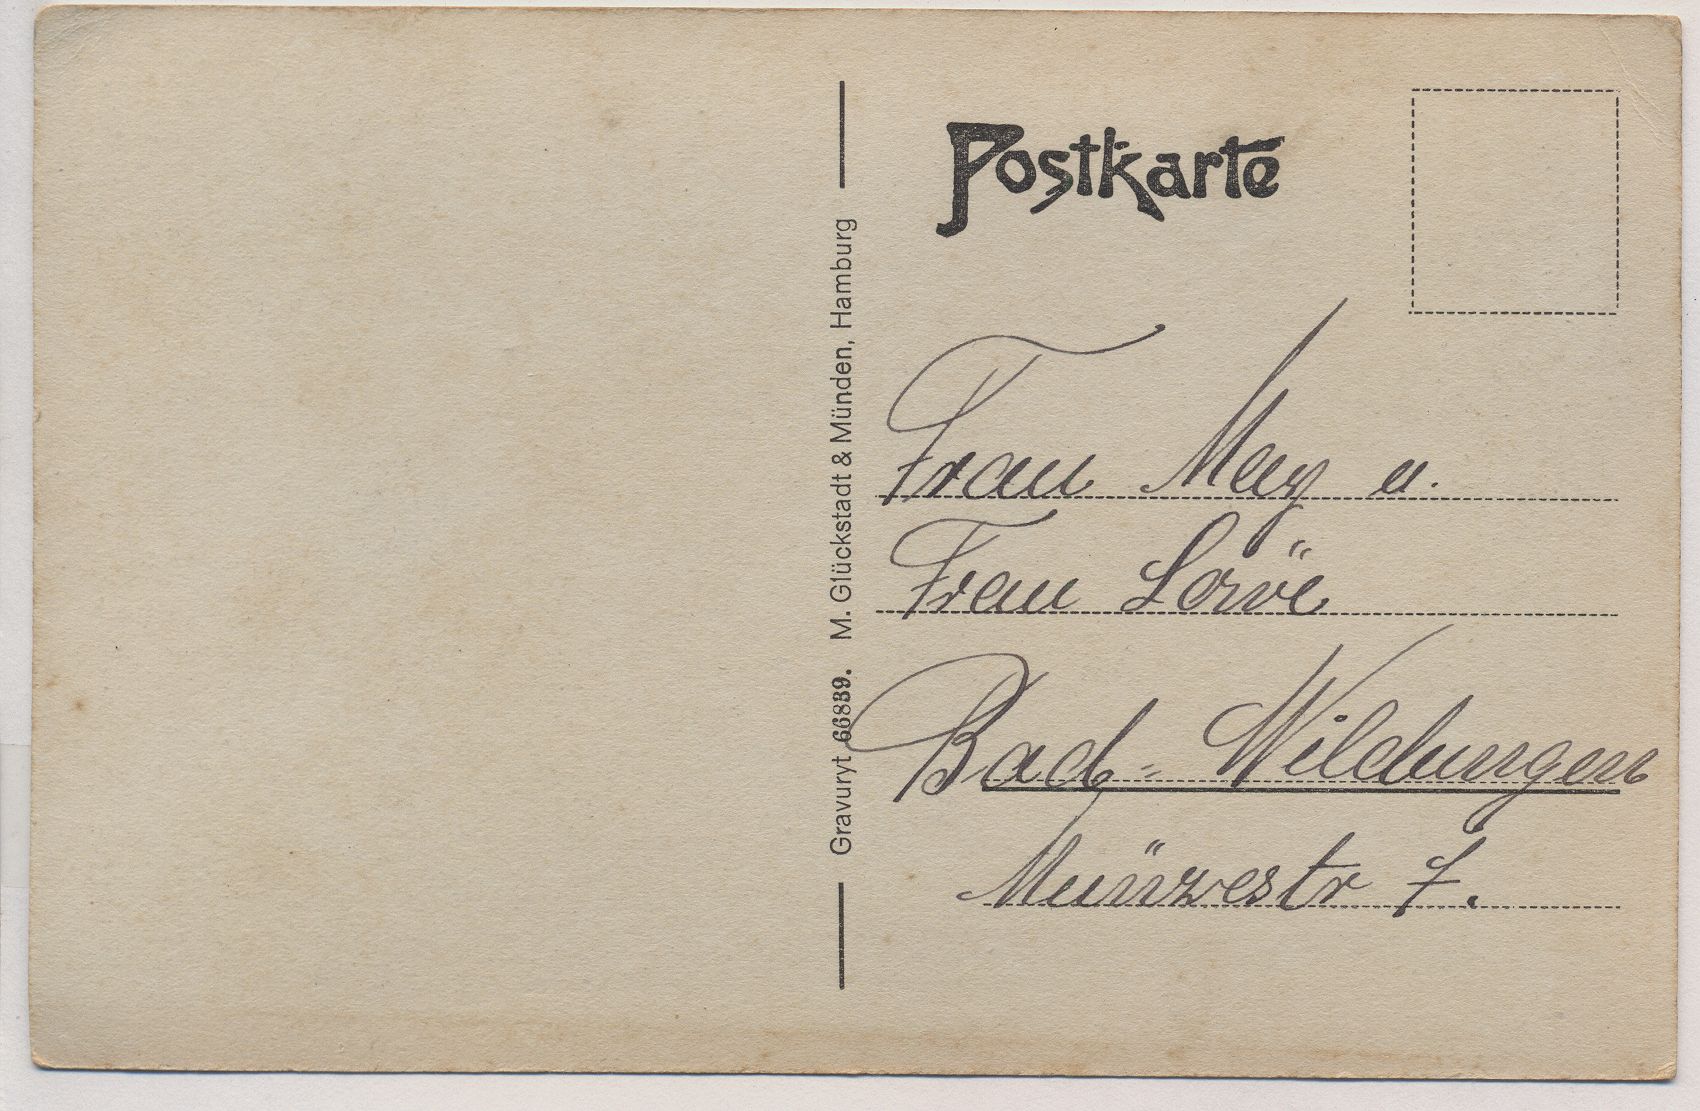 Postkarte
Gravuryt 66839. M. Glückstadt & Münden, Hamburg
Frau May u.
Frau Löwe
Bad-Wildungen
Münzestr 7.